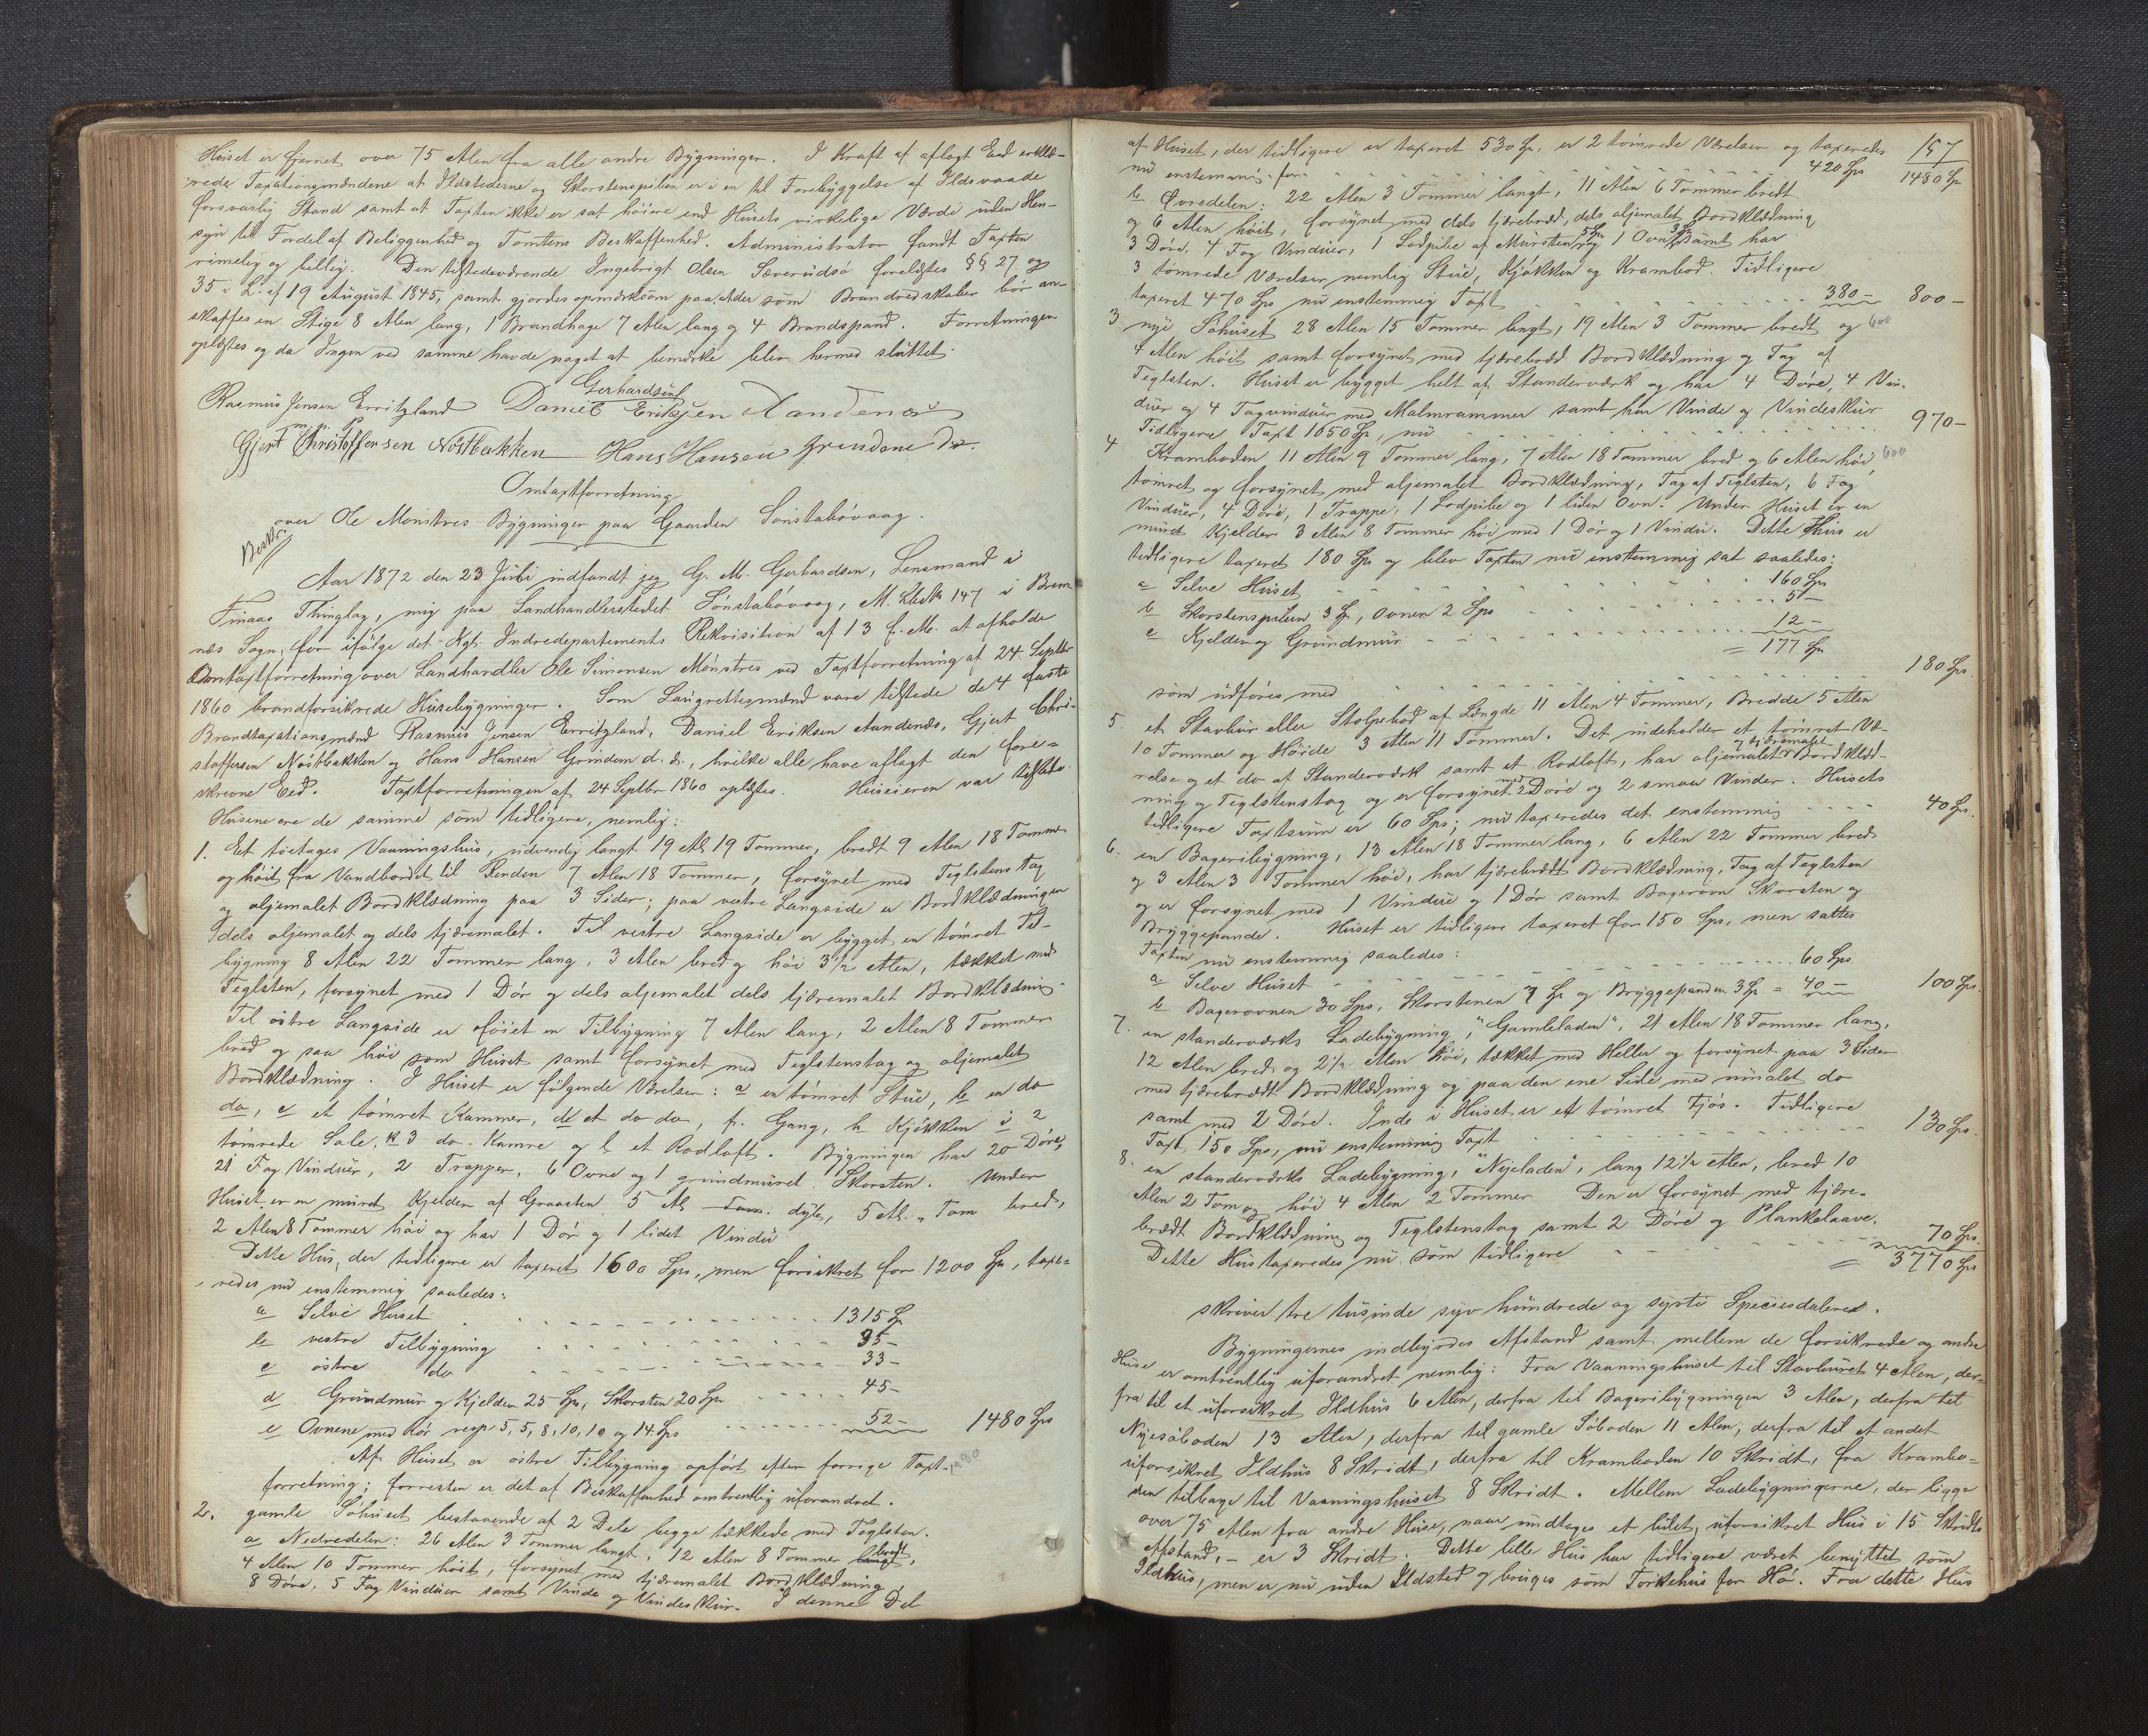 Huset er fjernet over 75 Alen fra alle andre Bygninger. I Kraft af aflagt Eed erklæ-
rede Taxationsmændene at Ildstederne og Skorstenspiben er i en til Forebyggelse af Ildsvaade
forsvarlig Stand samt at Taxten ikke er sat höiere end Husets virkelige Værdi uden Hen-
syn til Fordel af Beliggenhed og Tomtens Beskaffenhed. Administrator fandt Taxten
rimelig og billig. Den tilstedeværende Ingebrigt Olsen Sæverudsö forelæstes §§ 27 og
35 i L. af 19 August 1845, samt gjordes opmærksom paa, at der som Brandredskaber bör an-
skaffes en Stige 8 Alen lang, 1 Brandhage 7 Alen lang og 4 Brandspand. Forretningen
oplæstes og da Ingen ved samme havde noget at bemærke blev hermed sluttet.
Gerhardsen
Rasmus Jensen Erritzland Daniel Eriksen Aandenæs
m. p. P.
Gjert Christoffersen Nöstbakken Hans Hansen Grindene d.æ.
Omtaxtforretning
over Ole Mönstres Bygninger paa Gaarden Sönstabövaag.
Beskr.
Aar 1872 den 23 Juli indfandt jeg G. M. Gerhardsen, Lensmand i
Finaas Thinglag, mig paa Landhandlerstedet Sönstabövaag, M. 147 i Brem-
næs Sogn, for ifölge det Kgl. Indredepartements Rekvisition af 13 f. M. at afholde
Omtaxtforretning over Landhandler Ole Simonsen Mönstres ved Taxtforretning af 24 Septbr
1860 brandforsikrede Husebygninger. Som Laugrettesmænd vare tilstede de 4 faste
Brandtaxationsmænd Rasmus Jensen Erritzland, Daniel Eriksen Aandenæs, Gjert Chri-
stoffersen Nöstbakken og Hans Hansen Grindem d. æ., hvilke alle have aflagt den fore-
skrevne Eed. Taxtforretningen af 24 Septbr 1860 oplæstes. Huseieren var tilstede.
Husene ere de samme som tidligere, nemlig:
1. Et toetages Vaaningshus, udvendig langt 19 Al. 19 Tommer, bredt 9 Alen 18 Tommer
og höit fra Vandbordet til Renden 7 Alen 18 Tommer, forsynet med Teglstens Tag
og oljemalet Bordklædning paa 3 Sider; paa vestre Langside er Bordklædningen
dels oljemalet og dels tjæremalet. Til vestre Langside er bygget en tömret Til-
bygning 8 Alen 22 Tommer lang, 3 Alen bred og höi 3 1/2 Alen, tækket med
Teglsten, forsynet med 1 Dör og dels oljemalet dels tjæremalet Bordklædning.
Til östre Langside er aföiet en Tilbygning 7 Alen lang, 2 Alen 8 Tommer
bred og saa höi som Huset samt forsynet med Teglstenstag og oljemalet
Bordklædning. I Huset er fölgende Værelser: a en tömret Stue, b en do
do, c et tömret Kammer, d et do do, f. Gang, h Kjökken i 2
tömrede Sale, k 3 do. Kamre og l et Rodloft. Bygningen har 20 Döre,
21 Fag Vinduer, 2 Trapper, 6 Ovne og 1 grundmuret Skorsten. Under
Huset er en muret Kjelder af Graasten 5 Al. Tom. dyb, 5 Al. " Tom bred,
2 Alen 8 Tommer höi og har 1 Dör og 1 lidet Vindu
Dette Hus, der tidligere er taxeret 1600 Spd, men forsikret for 1200 Spd, taxe-
redes nu enstemmig saaledes:
a Selve Huset 1315 Spd
b vestre Tilbygning 35 –
c östre do 33 –
d Grundmur og Kjelder 25 Spd, Skorsten 20 Spd 45 –
e Ovnene med Rör resp 5, 5, 8, 10, 10 og 14 Spd 52 – 1480 Spd
Af Huset er östre Tilbygning opfört efter forrige Taxt- 1480
forretning; forresten er det af Beskaffenhed omtrentlig uforandret.
2. gamle Söhuset bestaaende af 2 Dele begge tækkede med Teglsten.
a Nedredelen: 26 Alen 3 Tommer langt, 12 Alen 8 Tommer langt bredt,
4 Alen 10 Tommer höit, forsynet med tjæremalet Bordklædning
8 Döre, 5 Fag Vinduer samt Vinde og Vindeskur. I denne Del
157
af Huset, der tidligere er taxeret 530 Spd, er 2 tömrede Værelser og taxeredes 1480 Spd
nu enstemmig for 420 Spd
b Övredelen: 22 Alen 3 Tommer langt, 11 Alen 6 Tommer bredt
og 6 Alen höit, forsynet med dels tjærebræd, dels oljemalet Bordklædning
3 Döre, 4 Fag Vinduer, 1 Lodpibe af Mursten 5 Spd og 1 Ovn 3 Spd samt har
3 tömrede Værelser nemlig Stue, Kjökken og Krambod. Tidligere
taxeret 470 Spd nu enstemmig Taxt 380 – 800 –
600
3 nye Söhuset 28 Alen 15 Tommer langt, 19 Alen 3 Tommer bredt og
4 Alen höit samt forsynet med tjærebræd Bordklædning og Tag af
Teglsten. Huset er bygget helt af Standerværk og har 4 Döre, 4 Vin-
duer og 4 Tagvinduer med Malmrammer samt har Vinde og Vindeskur
Tidligere Taxt 1050 Spd, nu 970 –
600
4 Kramboden 11 Alen 9 Tommer lang, 7 Alen 18 Tommer bred og 6 Alen höi,
tömret og forsynet med oljemalet Bordklædning, Tag af Teglsten, 6 Fag
Vinduer, 4 Döre, 1 Trappe, 1 Lodpibe og 1 liden Ovn. Under Huset er en
muret Kjelder 3 Alen 8 Tommer höi med 1 Dör og 1 Vindu. Dette Hus er
tidligere taxeret 180 Spd og blev Taxten nu enstemmig sat saaledes:
a Selve Huset 160 Spd
b Skorstenspiben 3 Spd, Ovnen 2 Spd 5 –
c Kjelder og Grundmur 12 –
= 177 Spd
som udföres med 180 Spd.
5. et Stavbur eller Stolpebod af Længde 11 Alen 4 Tommer, Bredde 5 Alen
10 Tommer og Höide 3 Alen 11 Tommer. Det indeholder et tömret Væ-
relse og et do af Standerværk samt et Rodloft, har oljemalet og tjæremalet Bordklæd-
ning og Teglstenstag og er forsynet med 2 Döre og 2 smaa Vinduer. Husets
tidligere Taxtsum er 60 Spd; nu taxeredes det enstemmig 40 Spd.
6. en Bageribygning, 13 Alen 18 Tommer lang, 6 Alen 22 Tommer bred
og 3 Alen 3 Tommer höi, har tjærebrædt Bordklædning, Tag af Teglsten
og er forsynet med 1 Vindu og 1 Dör samt Bagerovn Skorsten og
Bryggepande. Huset er tidligere taxeret for 150 Spd, men sattes
Taxten nu enstemmig saaledes:
a Selve Huset 60 Spd
b Bagerovnen 30 Spd, Skorstenen 7 Spd og Bryggepanden 3 Spd = 40 – 100 Spd.
7. en standerværks Ladebygning, "Gamleladen", 21 Alen 18 Tommer lang,
12 Alen bred og 2 1/2 Alen höi, tækket med Heller og forsynet paa 3 Sider
med tjærebrædt Bordklædning og paa den ene Side med umalet do
samt med 2 Döre. Inde i Huset er et tömret Fjös. Tidligere
Taxt 150 Spd, nu enstemmig Taxt 130 Spd.
8. en standerværks Ladebygning, "Nyeladen", lang 12 1/2 Alen, bred 10
Alen 2 Tom og höi 4 Alen 2 Tommer Den er forsynet med tjære-
brædt Bordklædning og Teglstenstag samt 2 Döre og Plankelaave.
Dette Hus taxeredes nu som tidligere 70 Spd.
= 3770 Spd
skriver tre tusinde syv hundrede og sytti Speciesdaler.
Bygningernes indbyrdes Afstand samt mellem de forsikrede og andre
Huse er omtrentlig uforandret nemlig: Fra Vaaningshuset til Stavburet 4 Alen, der-
fra til et uforsikret Ildhus 6 Alen, derfra til Bageribygningen 3 Alen, derfra til
Nyesöboden 13 Alen, derfra til gamle Söboden 11 Alen, derfra til et andet
uforsikret Ildhus 8 Skridt, derfra til Kramboden 10 Skridt, fra Krambo-
den tilbage til Vaaningshuset 8 Skridt. Mellem Ladebygningerne, der ligge
over 75 Alen fra andre Huse, naar undtages et lidet, uforsikret Hus i 15 Skridts
Afstand, – er 3 Skridt. Dette lille Hus har tidligere været benyttet som
Ildhus, men er nu uden Ildsted og bruges som Törkehus for Hö. Fra dette Hus